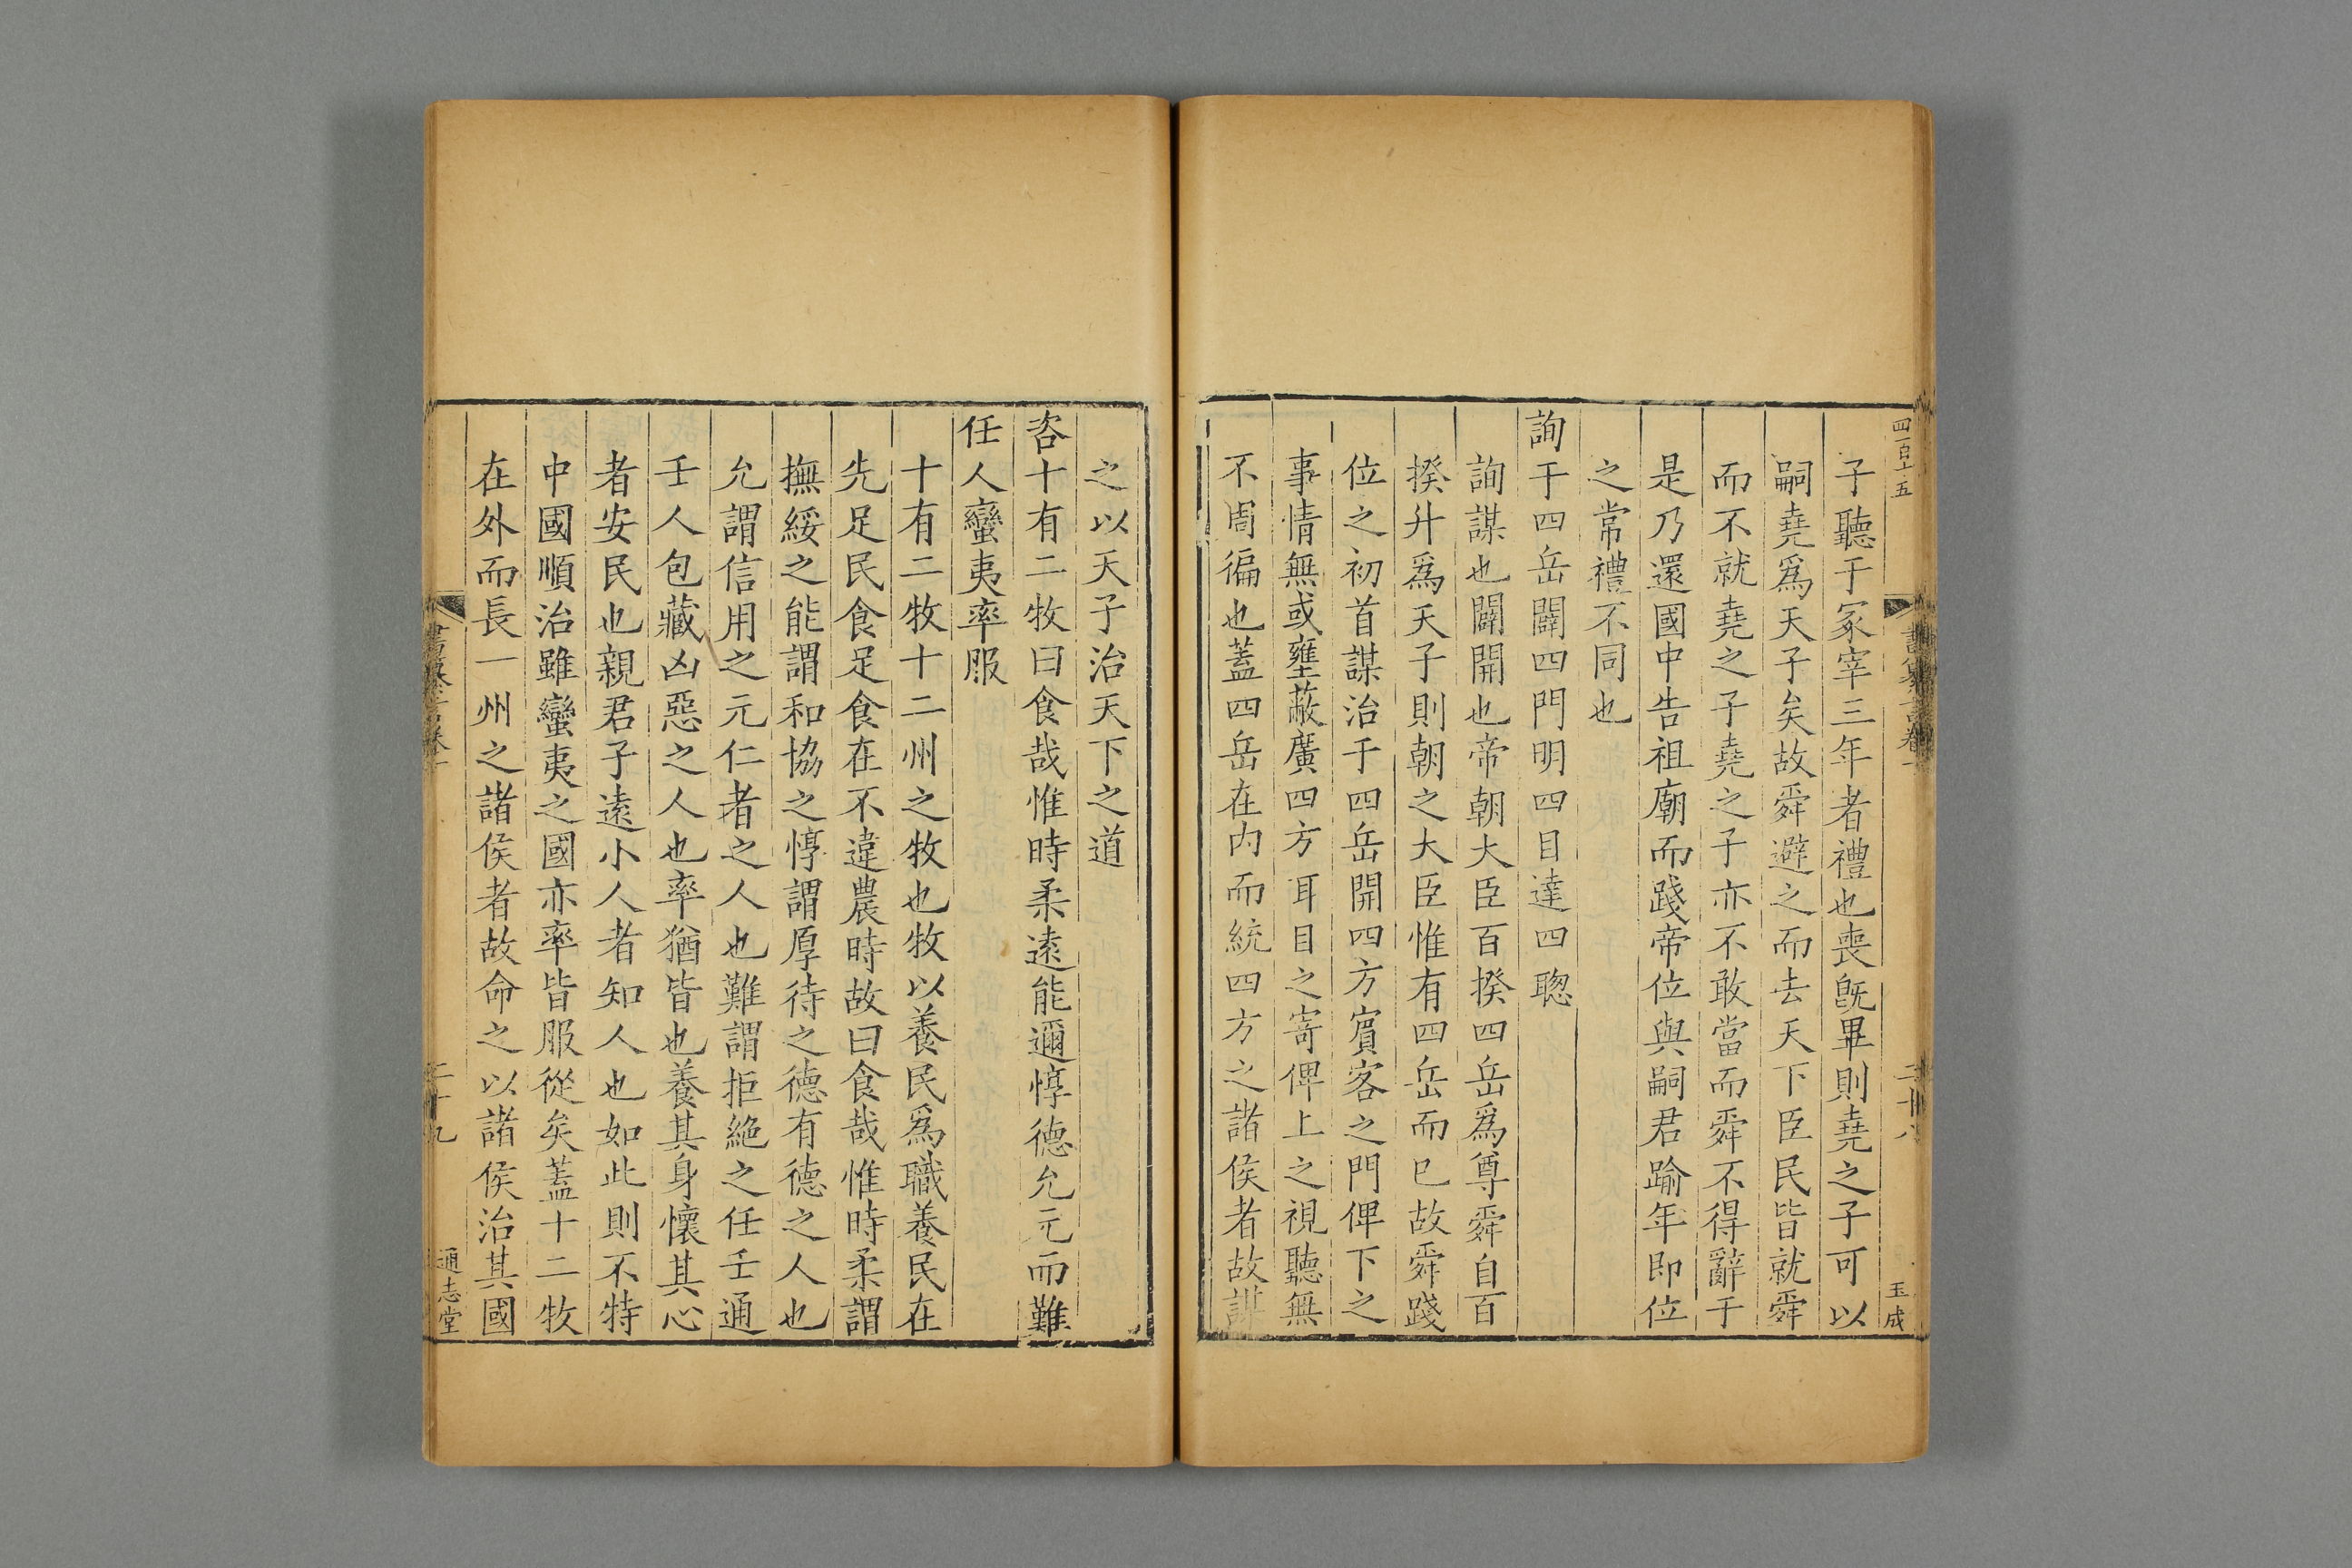 四百十五
書纂言卷一
二十八
玉成
子聽于冢宰三年者禮也喪旣畢則堯之子可以
嗣堯爲天子矣故舜避之而去天下臣民皆就舜
而不就堯之子堯之子亦不敢當而舜不得辭于
是乃還國中告祖廟而踐帝位與嗣君踰年卽位
之常禮不同也
詢于四岳闢四門明四目達四聰
詢謀也闢開也帝朝大臣百揆四岳爲尊舜自百
揆升爲天子則朝之大臣惟有四岳而已故舜踐
位之初首謀治于四岳開四方賓客之門俾下之
事情無或壅蔽廣四方耳目之寄俾上之視聽無
不周徧也蓋四岳在內而統四方之諸侯者故謀
之以天子治天下之道
咨十有二牧曰食哉惟時柔遠能邇惇德允元而難
任人蠻夷率服
十有二牧十二州之牧也牧以養民爲職養民在
先足民食足食在不違農時故曰食哉惟時柔謂
撫綏之能謂和協之惇謂厚待之德有德之人也
允謂信用之元仁者之人也難謂拒絶之任壬通
壬人包藏凶惡之人也率猶皆也養其身懷其心
者安民也親君子遠小人者知人也如此則不特
中國順治雖蠻夷之國亦率皆服從矣蓋十二牧
在外而長一州之諸侯者故命之以諸侯治其國
書纂言卷一
二十九
通志堂